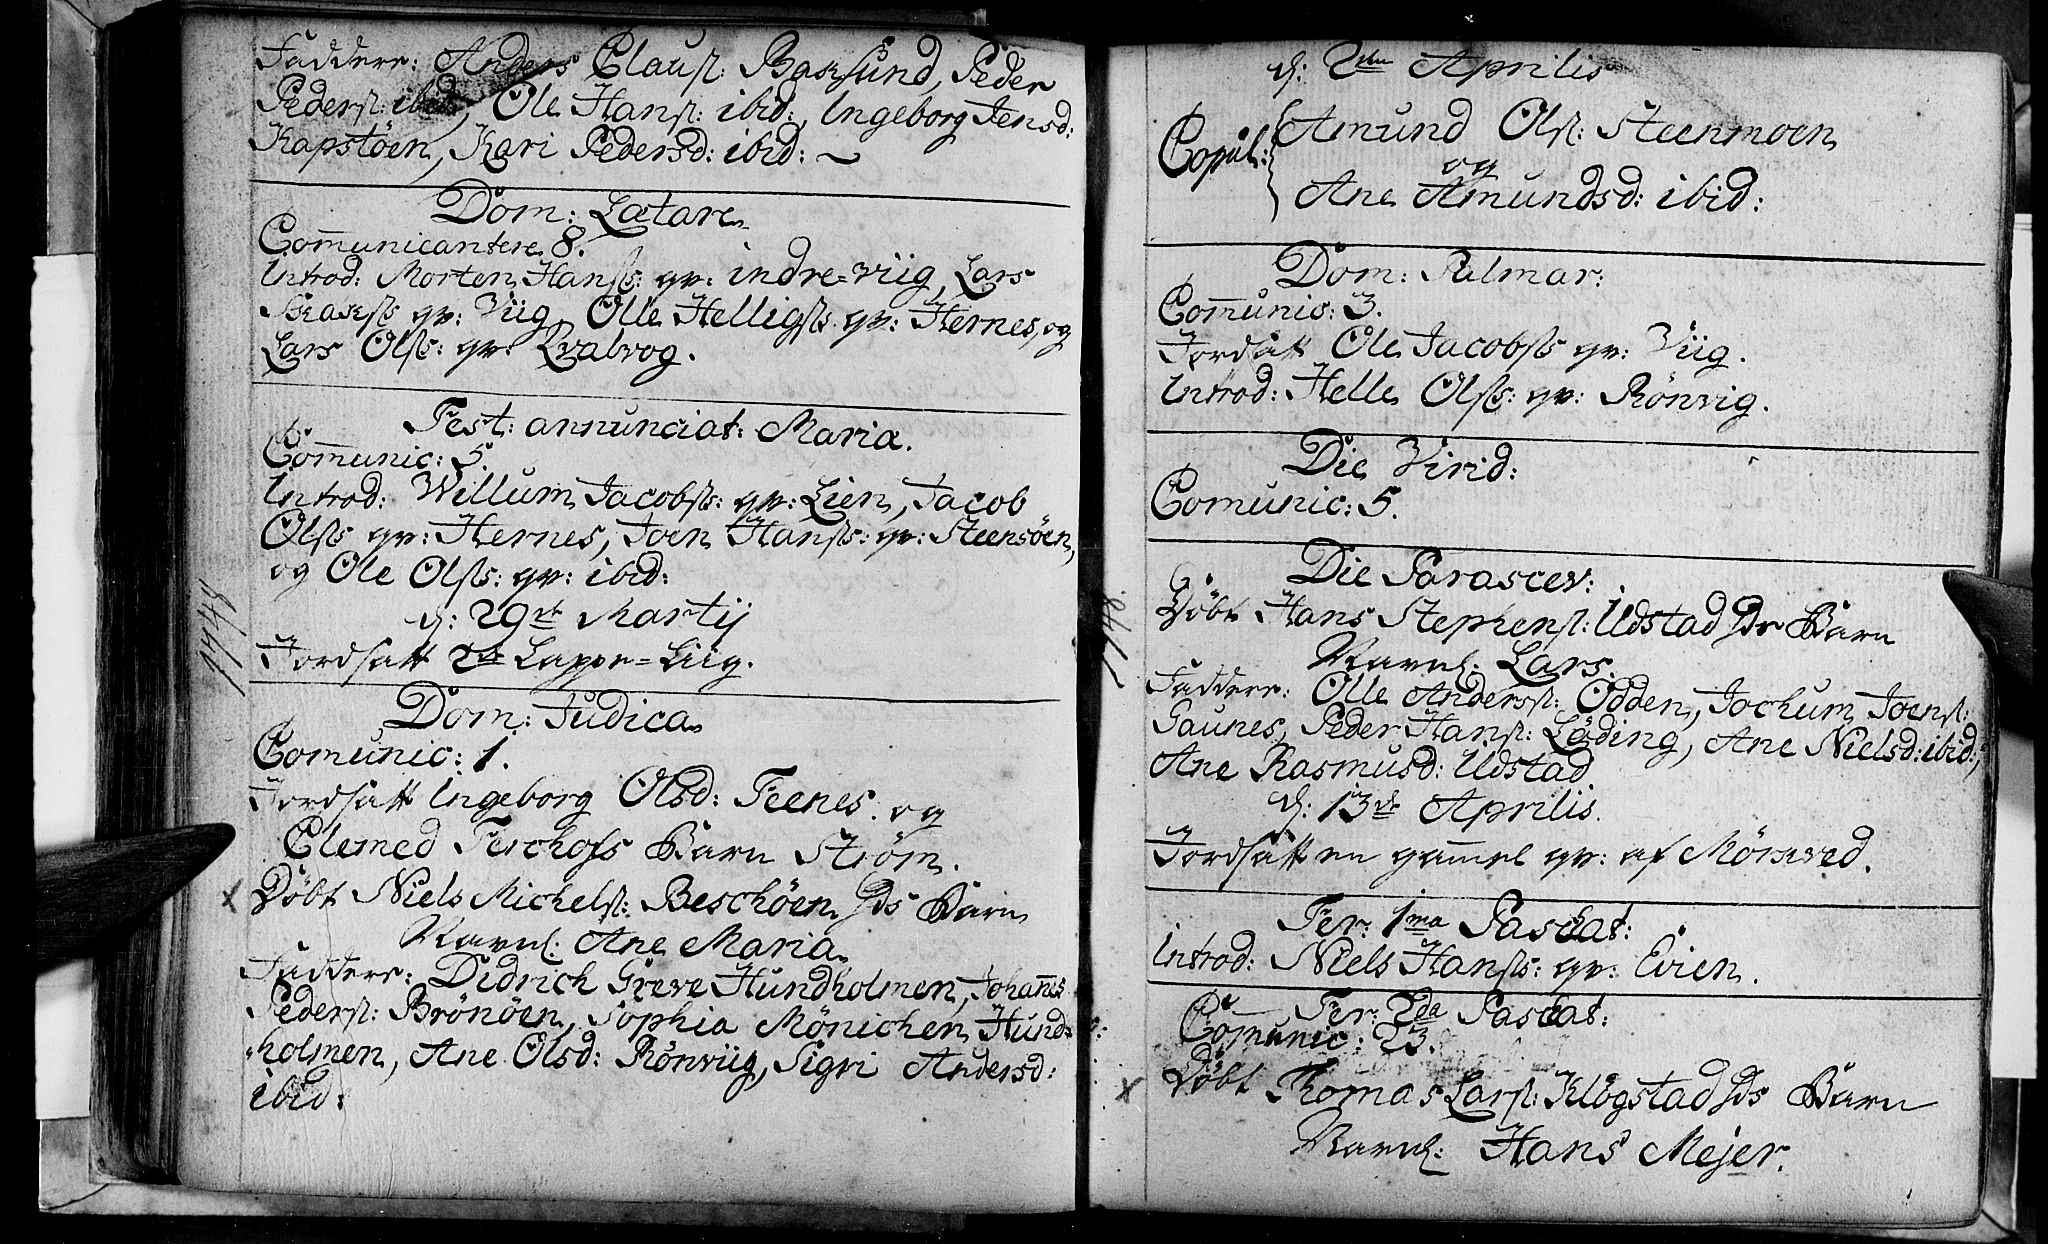 Faddere: Anders Clausſ: Baksund, Peder
Pedersſ: ibid, Ole Hansſ: ibid:, Ingeborg Jensd:
Kapstöen, Kari Pedersd: ibid:
Dom: Lætare
Communicantere 8.
Introd: Morten Hansſs: qv: indre=viig, Lars
Isakſs qv: Viig, Olle Helligſs qv: Hernes, og
Lars Olſs: qv: Qvalvog.
Fest: annunciat: Mariæ.
Com̄unic: 5.
Introd: Willum Jacobſs: qv: Lien, Jacob
Olſs qv: Hernes, Joen Hansſs: qv: Steensöen,
og Ole Olſs: qv: ibid:
1748
d: 29de Martij
Jordsatt 2de Lappe=Liig.
Dom: Judica
Com̄unic: 1.
Jordsatt Ingeborg Olsd: Feenes. og
Elemed Barn Ström.
Döbt Niels Michelſ: Beschöen hds Barn
Navnl: Ane Maria
Faddere: Didrich Greve Hundholmen, Johannes
Pedersſ: Brönöen, Sophia Mönichen Hund=
holmen, Ane Olsd: Rönviig, Sigri Andersd:
ibid:
d: 2den Aprilis
Copul: Amund Olſ: Steenmoen
og
Ane Amundsd: ibid:
Dom: Palmar:
Com̄unic: 3.
Jordsatt Ole Jacobſs qv: Viig.
Introd: Helle Olſs: qv: Rönvig.
Die Virid:
Com̄unic: 5.
1748.
Die Parascev:
Döbt Hans Stephensſ: Udstad hds Barn
Navnl: Lars.
Faddere: Olle Andersſ: Odden, Jochum Joensſ:
Saunes, Peder Hansſ: Löding, Ane Nielsd: ibid:,
Ane Rasmusd: Udstad
d: 13de Aprilis.
Jordsatt en gam̄el qv: af Mörkved.
Fer: 1ma Paschat:
Introd: Niels Hansſs: qv: Evien.
Fer: 2da Paschat:
Com̄unic: 23.
Döbt Thomas Larsſ: Klögstad hds Barn
Navnl: Hans Mejer.